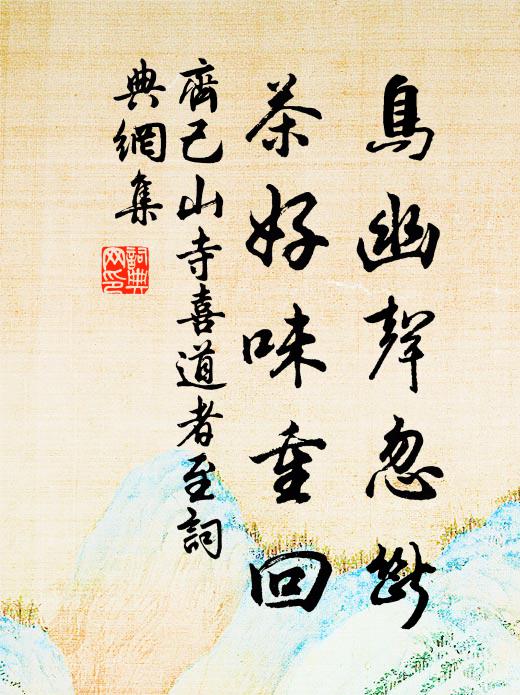 鳥幽聲忽斷
茶好味重回
齊己山寺喜道者至詞
典網集
詞典
网印